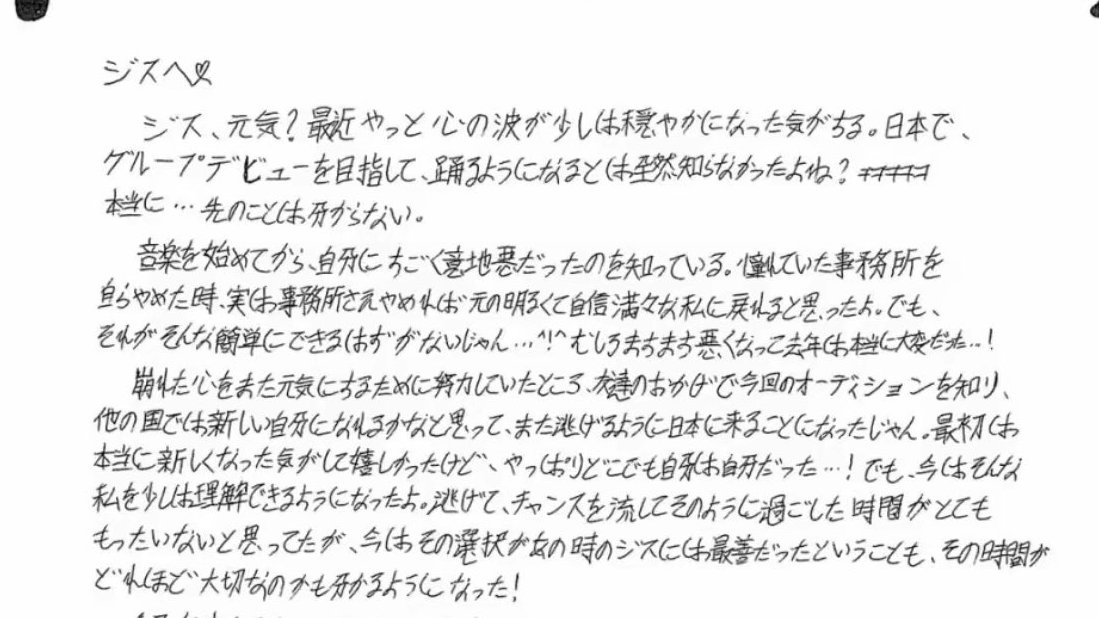 ジスへ♡
ジス、元気？最近やっと心の波が少しは穏やかになった気がする。日本で、
グループデビューを目指して、踊るようになるとは全然知らなかったよね？ココココ
本当に…先のことは分からない。
音楽を始めてから、自分にすごく意地悪だったのを知っている。憧れていた事務所を
自らやめた時、実は事務所さえやめれば元の明るくて自信満々な私に戻れると思ったよ。でも、
それがそんな簡単にできるはずがないじゃん…^!^むしろますます悪くなって去年は本当に大変だった…!
崩れた心をまた元気にするために努力していたところ、友達のおかげで今回のオーディションを知り、
他の国では新しい自分になれるかなと思って、また逃げるように日本に来ることになったじゃん。最初は
本当に新しくなった気がして嬉しかったけど、やっぱりどこでも自分は自分だった…！でも、今はそんな
私を少しは理解できるようになったよ。逃げて、チャンスを流してそのように過ごした時間がとても
もったいないと思ってたが、今はその選択があの時のジスには最善だったということも、その時間が
どれほど大切なのかも分かるようになった！